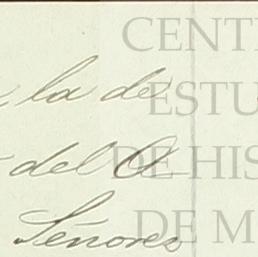 la de
del O
Señores
CENT
ESTU
DE HIS
DE M